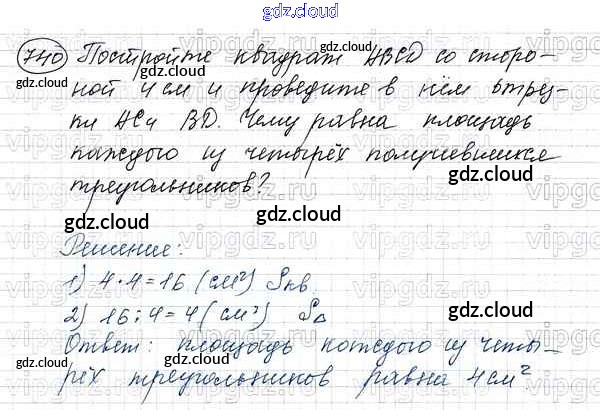 gdz.cloud
740 Постройте квадрат ABCD со сторо-
ной 4 см и проведите в нём отрез-
ки AC и BD. Чему равна площадь
каждого из четырёх получившихся
треугольников?
Решение:
1) 4·4=16 (см²) Sкв.
2) 16:4=4 (см²) S∆
Ответ: площадь каждого из четы-
рёх треугольников равна 4 см²
gdz.cloud
vipgdz.cloud